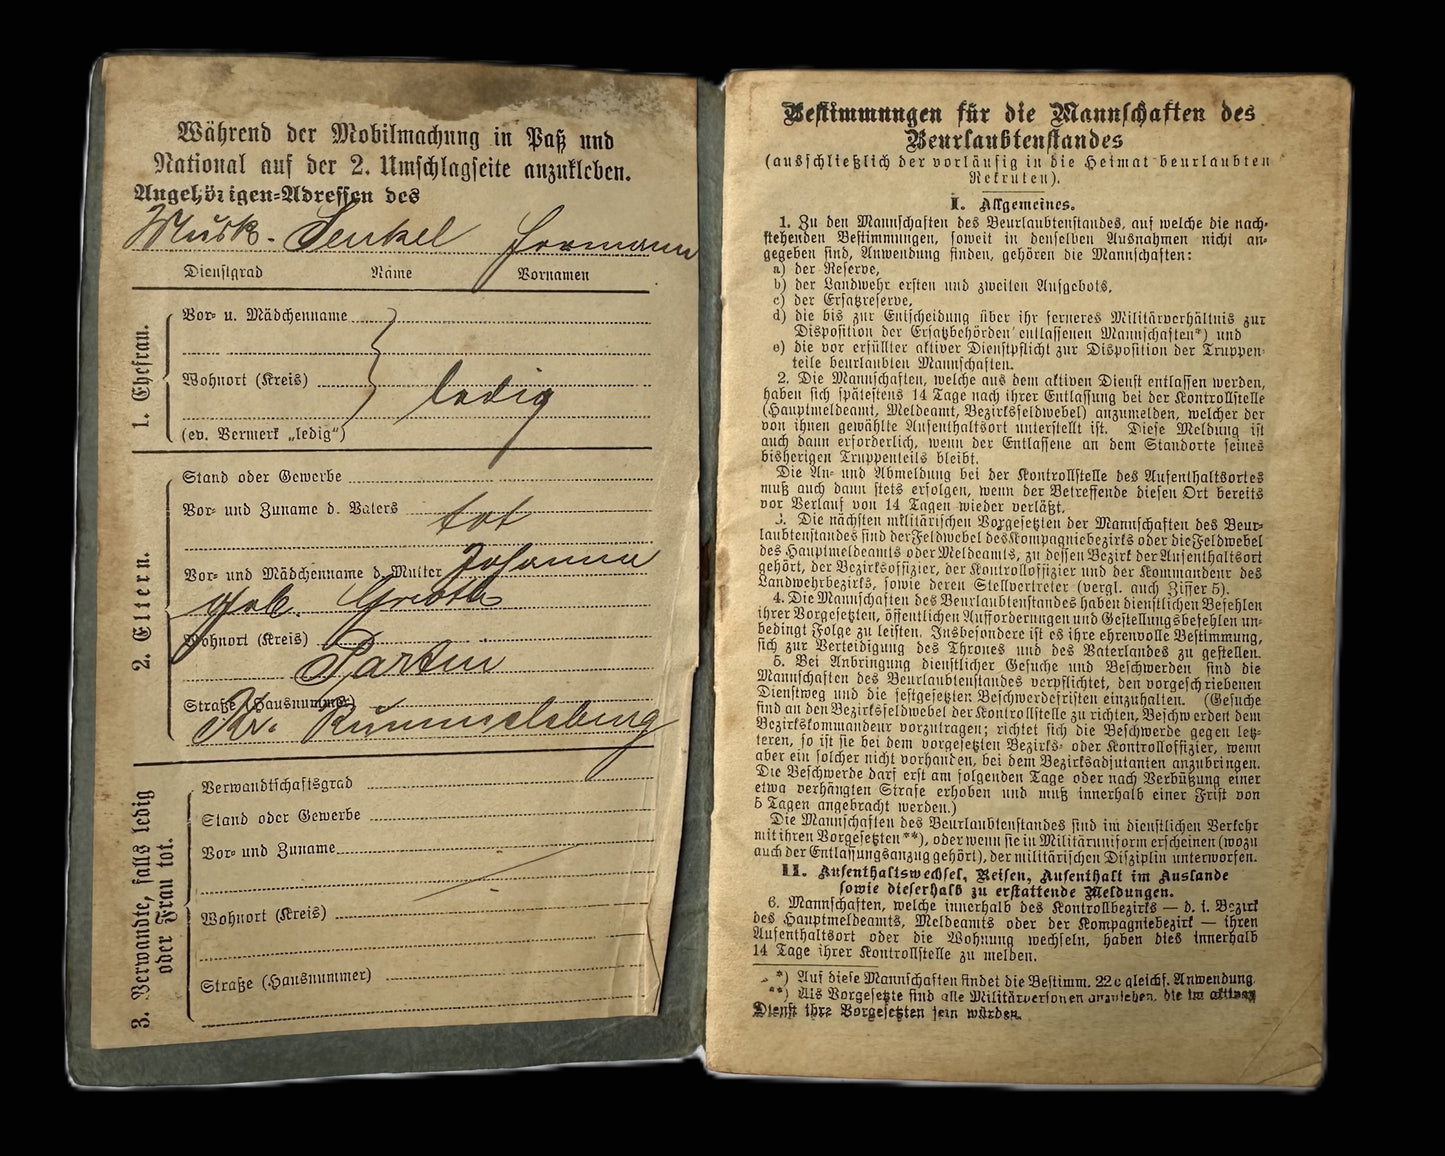 Während der Mobilmachung in Paß und
National auf der 2. Umschlagseite anzukleben.
Angehörigen-Adressen des
Musk. Senkel Hermann
Dienstgrad Name Vornamen
1. Ehefrau.
Vor- u. Mädchenname
Wohnort (Kreis)
ledig
(ev. Vermerk „ledig“)
2. Eltern.
Stand oder Gewerbe
Vor- und Zuname d. Vaters
tot
Vor- und Mädchenname d. Mutter Johanna
geb.
Wohnort (Kreis)
Straße (Hausnummer)
Kr. Rummelsburg
3. Verwandte, falls ledig
oder Frau tot.
Verwandtschaftsgrad
Stand oder Gewerbe
Vor- und Zuname
Wohnort (Kreis)
Straße (Hausnummer)
Bestimmungen für die Mannschaften des
Beurlaubtenstandes
(ausschließlich der vorläufig in die Heimat beurlaubten
Rekruten).
I. Allgemeines.
1. Zu den Mannschaften des Beurlaubtenstandes, auf welche die nach-
stehenden Bestimmungen, soweit in denselben Ausnahmen nicht an-
gegeben sind, Anwendung finden, gehören die Mannschaften:
a) der Reserve,
b) der Landwehr ersten und zweiten Aufgebots,
c) der Ersatzreserve,
d) die bis zur Entscheidung über ihr ferneres Militärverhältnis zur
Disposition der Ersatzbehörden entlassenen Mannschaften*) und
e) die vor erfüllter aktiver Dienstpflicht zur Disposition der Truppen-
teile beurlaubten Mannschaften.
2. Die Mannschaften, welche aus dem aktiven Dienst entlassen werden,
haben sich spätestens 14 Tage nach ihrer Entlassung bei der Kontrollstelle
(Hauptmeldeamt, Meldeamt, Bezirksfeldwebel) anzumelden, welcher der
von ihnen gewählte Aufenthaltsort unterstellt ist. Diese Meldung ist
auch dann erforderlich, wenn der Entlassene an dem Standorte seines
bisherigen Truppenteils bleibt.
Die An- und Abmeldung bei der Kontrollstelle des Aufenthaltsortes
muß auch dann stets erfolgen, wenn der Betreffende diesen Ort bereits
vor Verlauf von 14 Tagen wieder verläßt.
3. Die nächsten militärischen Vorgesetzten der Mannschaften des Beur-
laubtenstandes sind der Feldwebel des Kompagniebezirks oder die Feldwebel
des Hauptmeldeamts oder Meldeamts, zu dessen Bezirk der Aufenthaltsort
gehört, der Bezirksoffizier, der Kontrolloffizier und der Kommandeur des
Landwehrbezirks, sowie deren Stellvertreter (vergl. auch Ziffer 5).
4. Die Mannschaften des Beurlaubtenstandes haben dienstlichen Befehlen
ihrer Vorgesetzten, öffentlichen Aufforderungen und Gestellungsbefehlen un-
bedingt Folge zu leisten. Insbesondere ist es ihre ehrenvolle Bestimmung,
sich zur Verteidigung des Thrones und des Vaterlandes zu gestellen.
5. Bei Anbringung dienstlicher Gesuche und Beschwerden sind die
Mannschaften des Beurlaubtenstandes verpflichtet, den vorgeschriebenen
Dienstweg und die festgesetzten Beschwerdefristen einzuhalten. (Gesuche
sind an den Bezirksfeldwebel der Kontrollstelle zu richten, Beschwerden dem
Bezirkskommandeur vorzutragen; richtet sich die Beschwerde gegen letz-
teren, so ist sie bei dem vorgesetzten Bezirks- oder Kontrolloffizier, wenn
aber ein solcher nicht vorhanden, bei dem Bezirksadjutanten anzubringen.
Die Beschwerde darf erst am folgenden Tage oder nach Verbüßung einer
etwa verhängten Strafe erhoben und muß innerhalb einer Frist von
5 Tagen angebracht werden.)
Die Mannschaften des Beurlaubtenstandes sind im dienstlichen Verkehr
mit ihren Vorgesetzten**), oder wenn sie in Militäruniform erscheinen (wozu
auch der Entlassungsanzug gehört), der militärischen Disziplin unterworfen.
II. Aufenthaltswechsel, Reisen, Aufenthalt im Auslande
sowie dieserhalb zu erstattende Meldungen.
6. Mannschaften, welche innerhalb des Kontrollbezirks — d. i. Bezirk
des Hauptmeldeamts, Meldeamts oder der Kompagniebezirk — ihren
Aufenthaltsort oder die Wohnung wechseln, haben dies innerhalb
14 Tage ihrer Kontrollstelle zu melden.
*) Auf diese Mannschaften findet die Bestimm. 22c gleichf. Anwendung.
**) Als Vorgesetzte sind alle Militärpersonen anzusehen, die im aktiven
Dienst ihre Vorgesetzten sein würden.